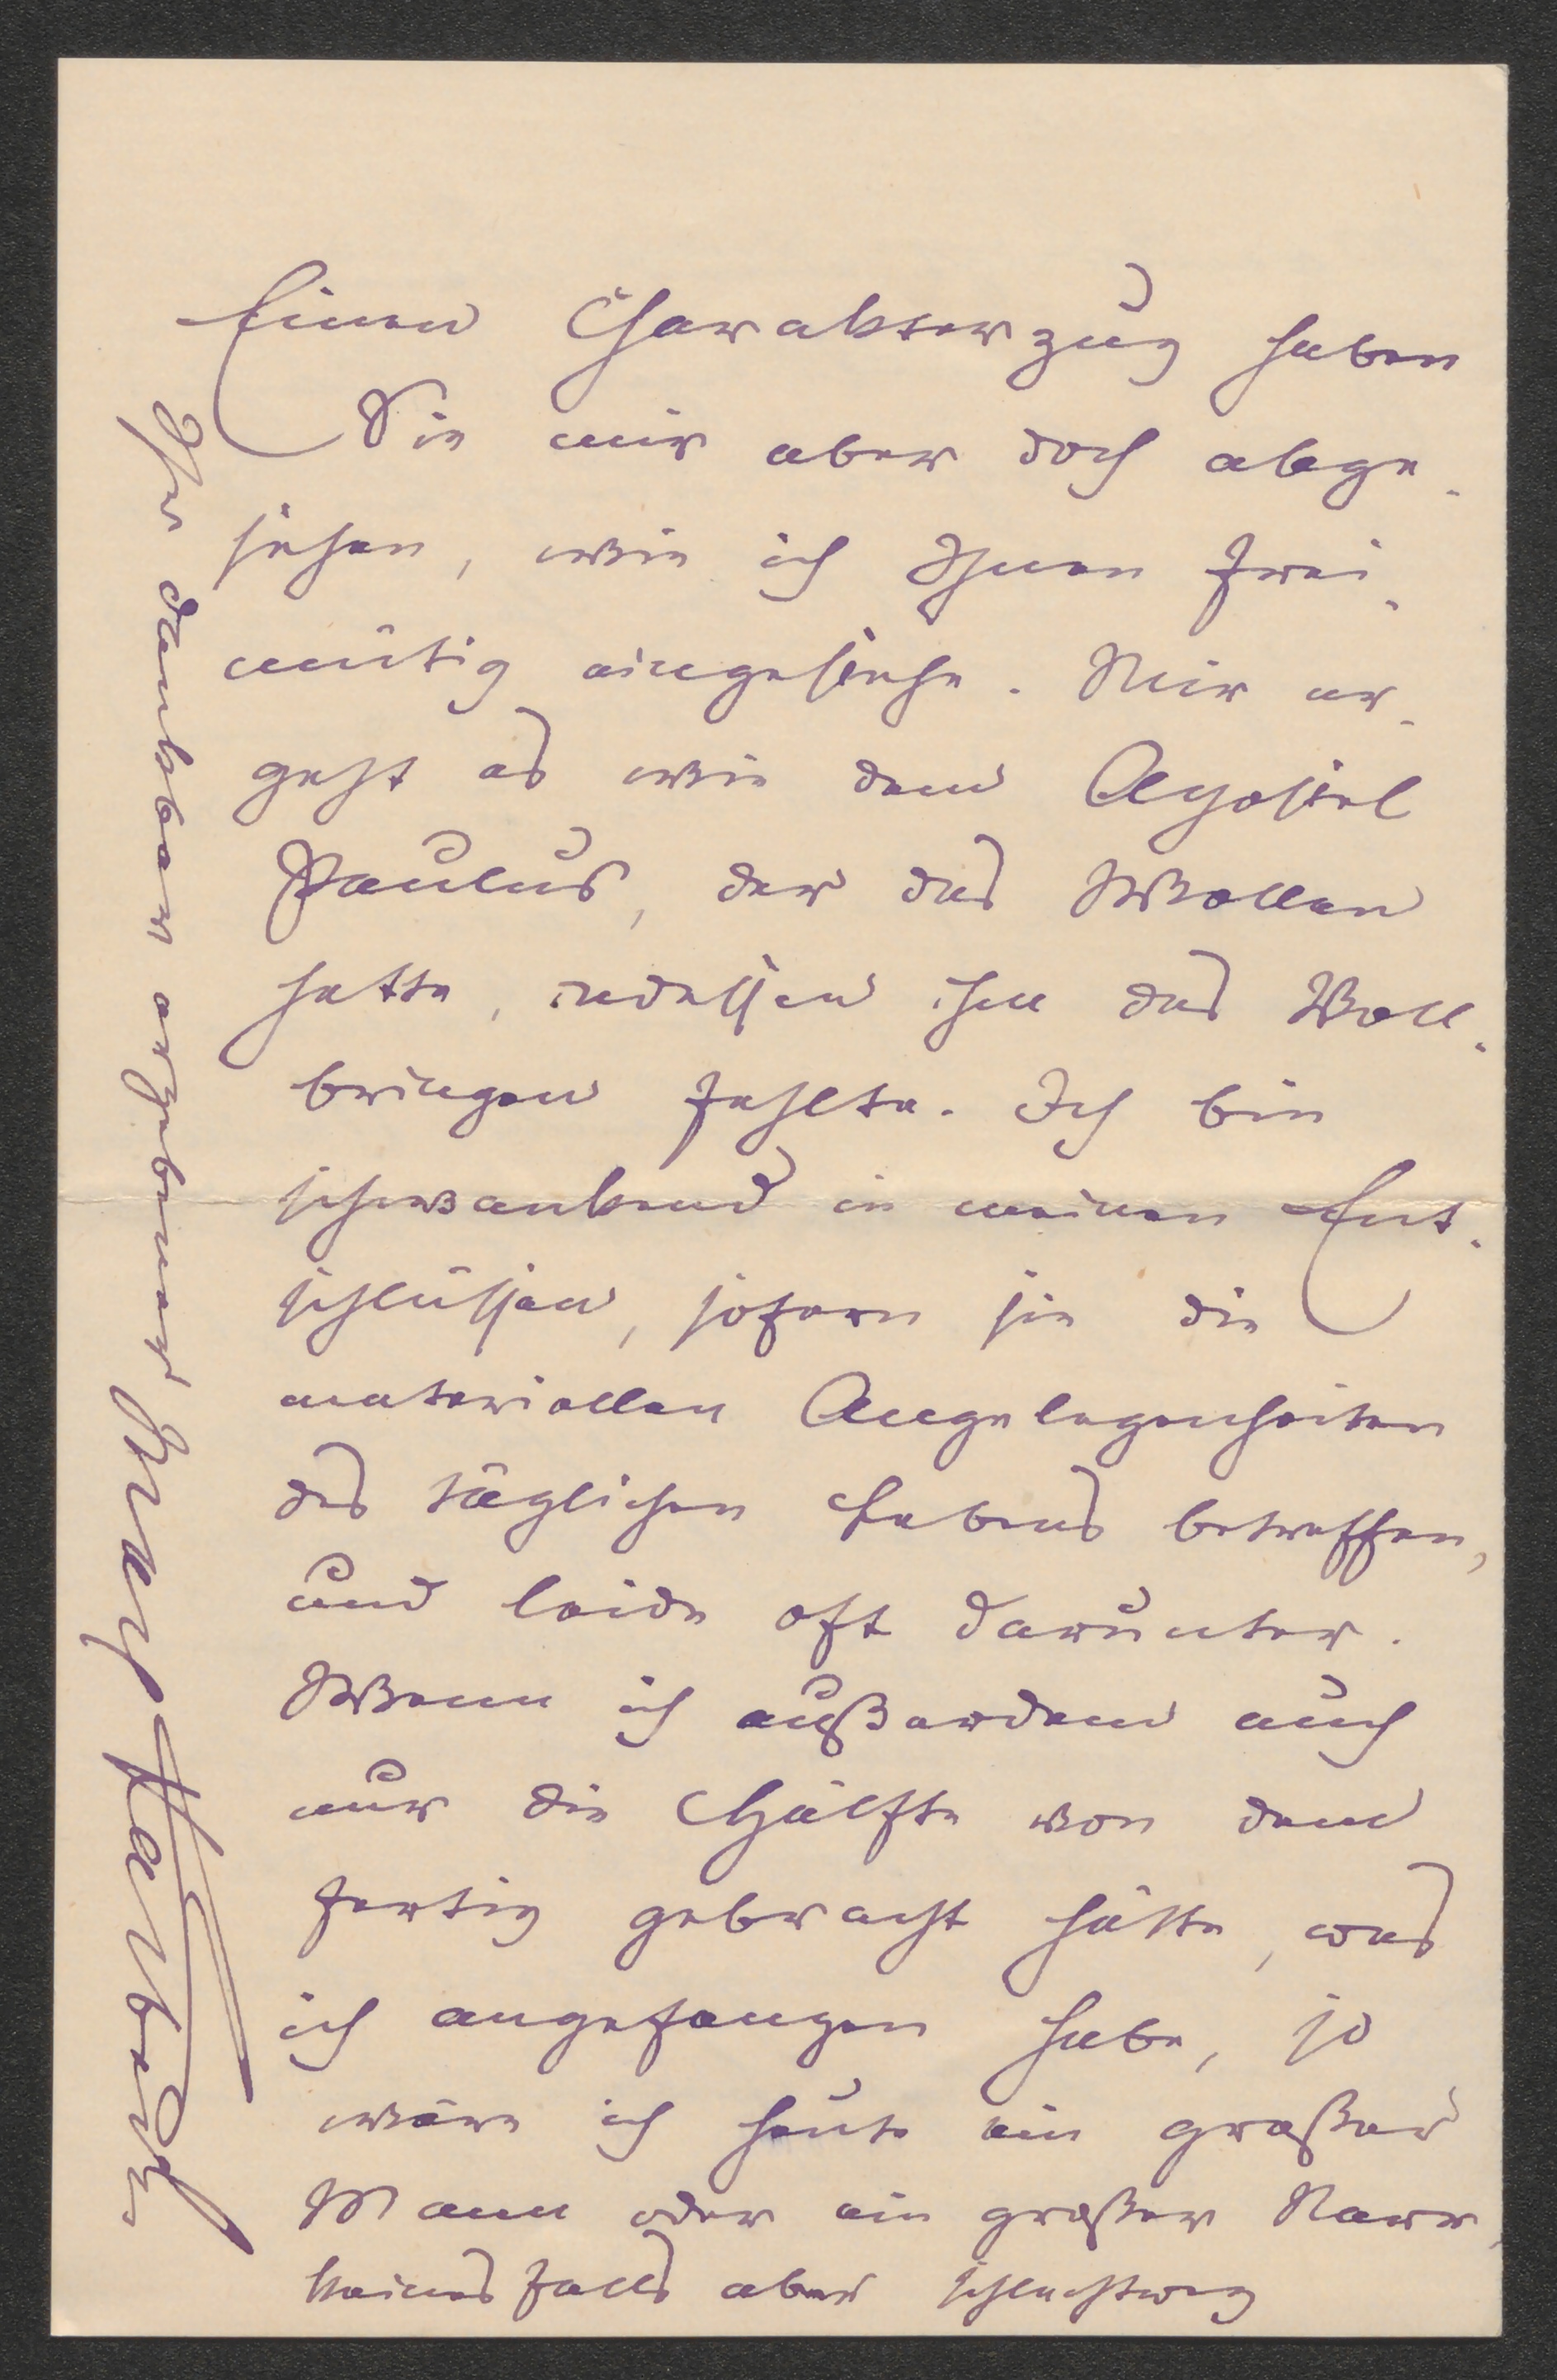 Einen Charakterzug haben
Sie mir aber doch abge-
sehen, wie ich Ihnen frei-
mütig eingestehe. Mir er-
geht es wie dem Apostel
Paulus, der das Wollen
hatte, indessen ihm das Voll-
bringen fehlte. Ich bin
schwankend in meinen Ent-
schlüssen, sofern sie die
materiellen Angelegenheiten
des täglichen Lebens betreffen,
und leide oft darunter.
Wenn ich außerdem auch
nur die Hälfte von dem
fertig gebracht hätte, was
ich angefangen habe, so
wäre ich heute ein großer
Mann oder ein großer Narr,
keinesfalls aber schlechtweg
Ihr dankbar ergebener